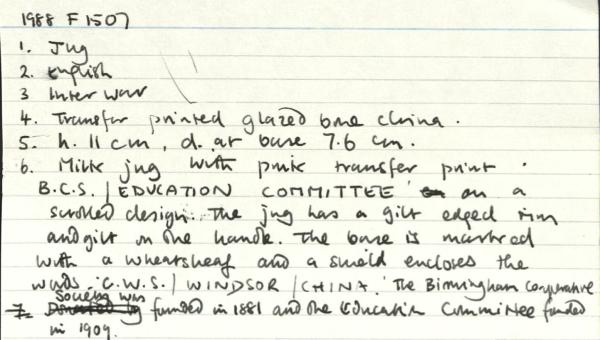 1988 F 1507
1. Jug
2. English
3 Inter war
4. Transfer printed glazed bone china.
5. h. 11 cm, d. at base 7.6 cm.
6. Milk jug with pink transfer print.
B.C.S. / EDUCATION COMMITTEE' on a
scrolled design. The jug has a gilt edged rim
and gilt on the handle. The base is marked
with a wheatsheaf and a shield encloses the
words 'C.W.S. / WINDSOR / CHINA.' The Birmingham Cooperative
Society was
7. Donated by funded in 1881 and the Education Committee funded
in 1909.